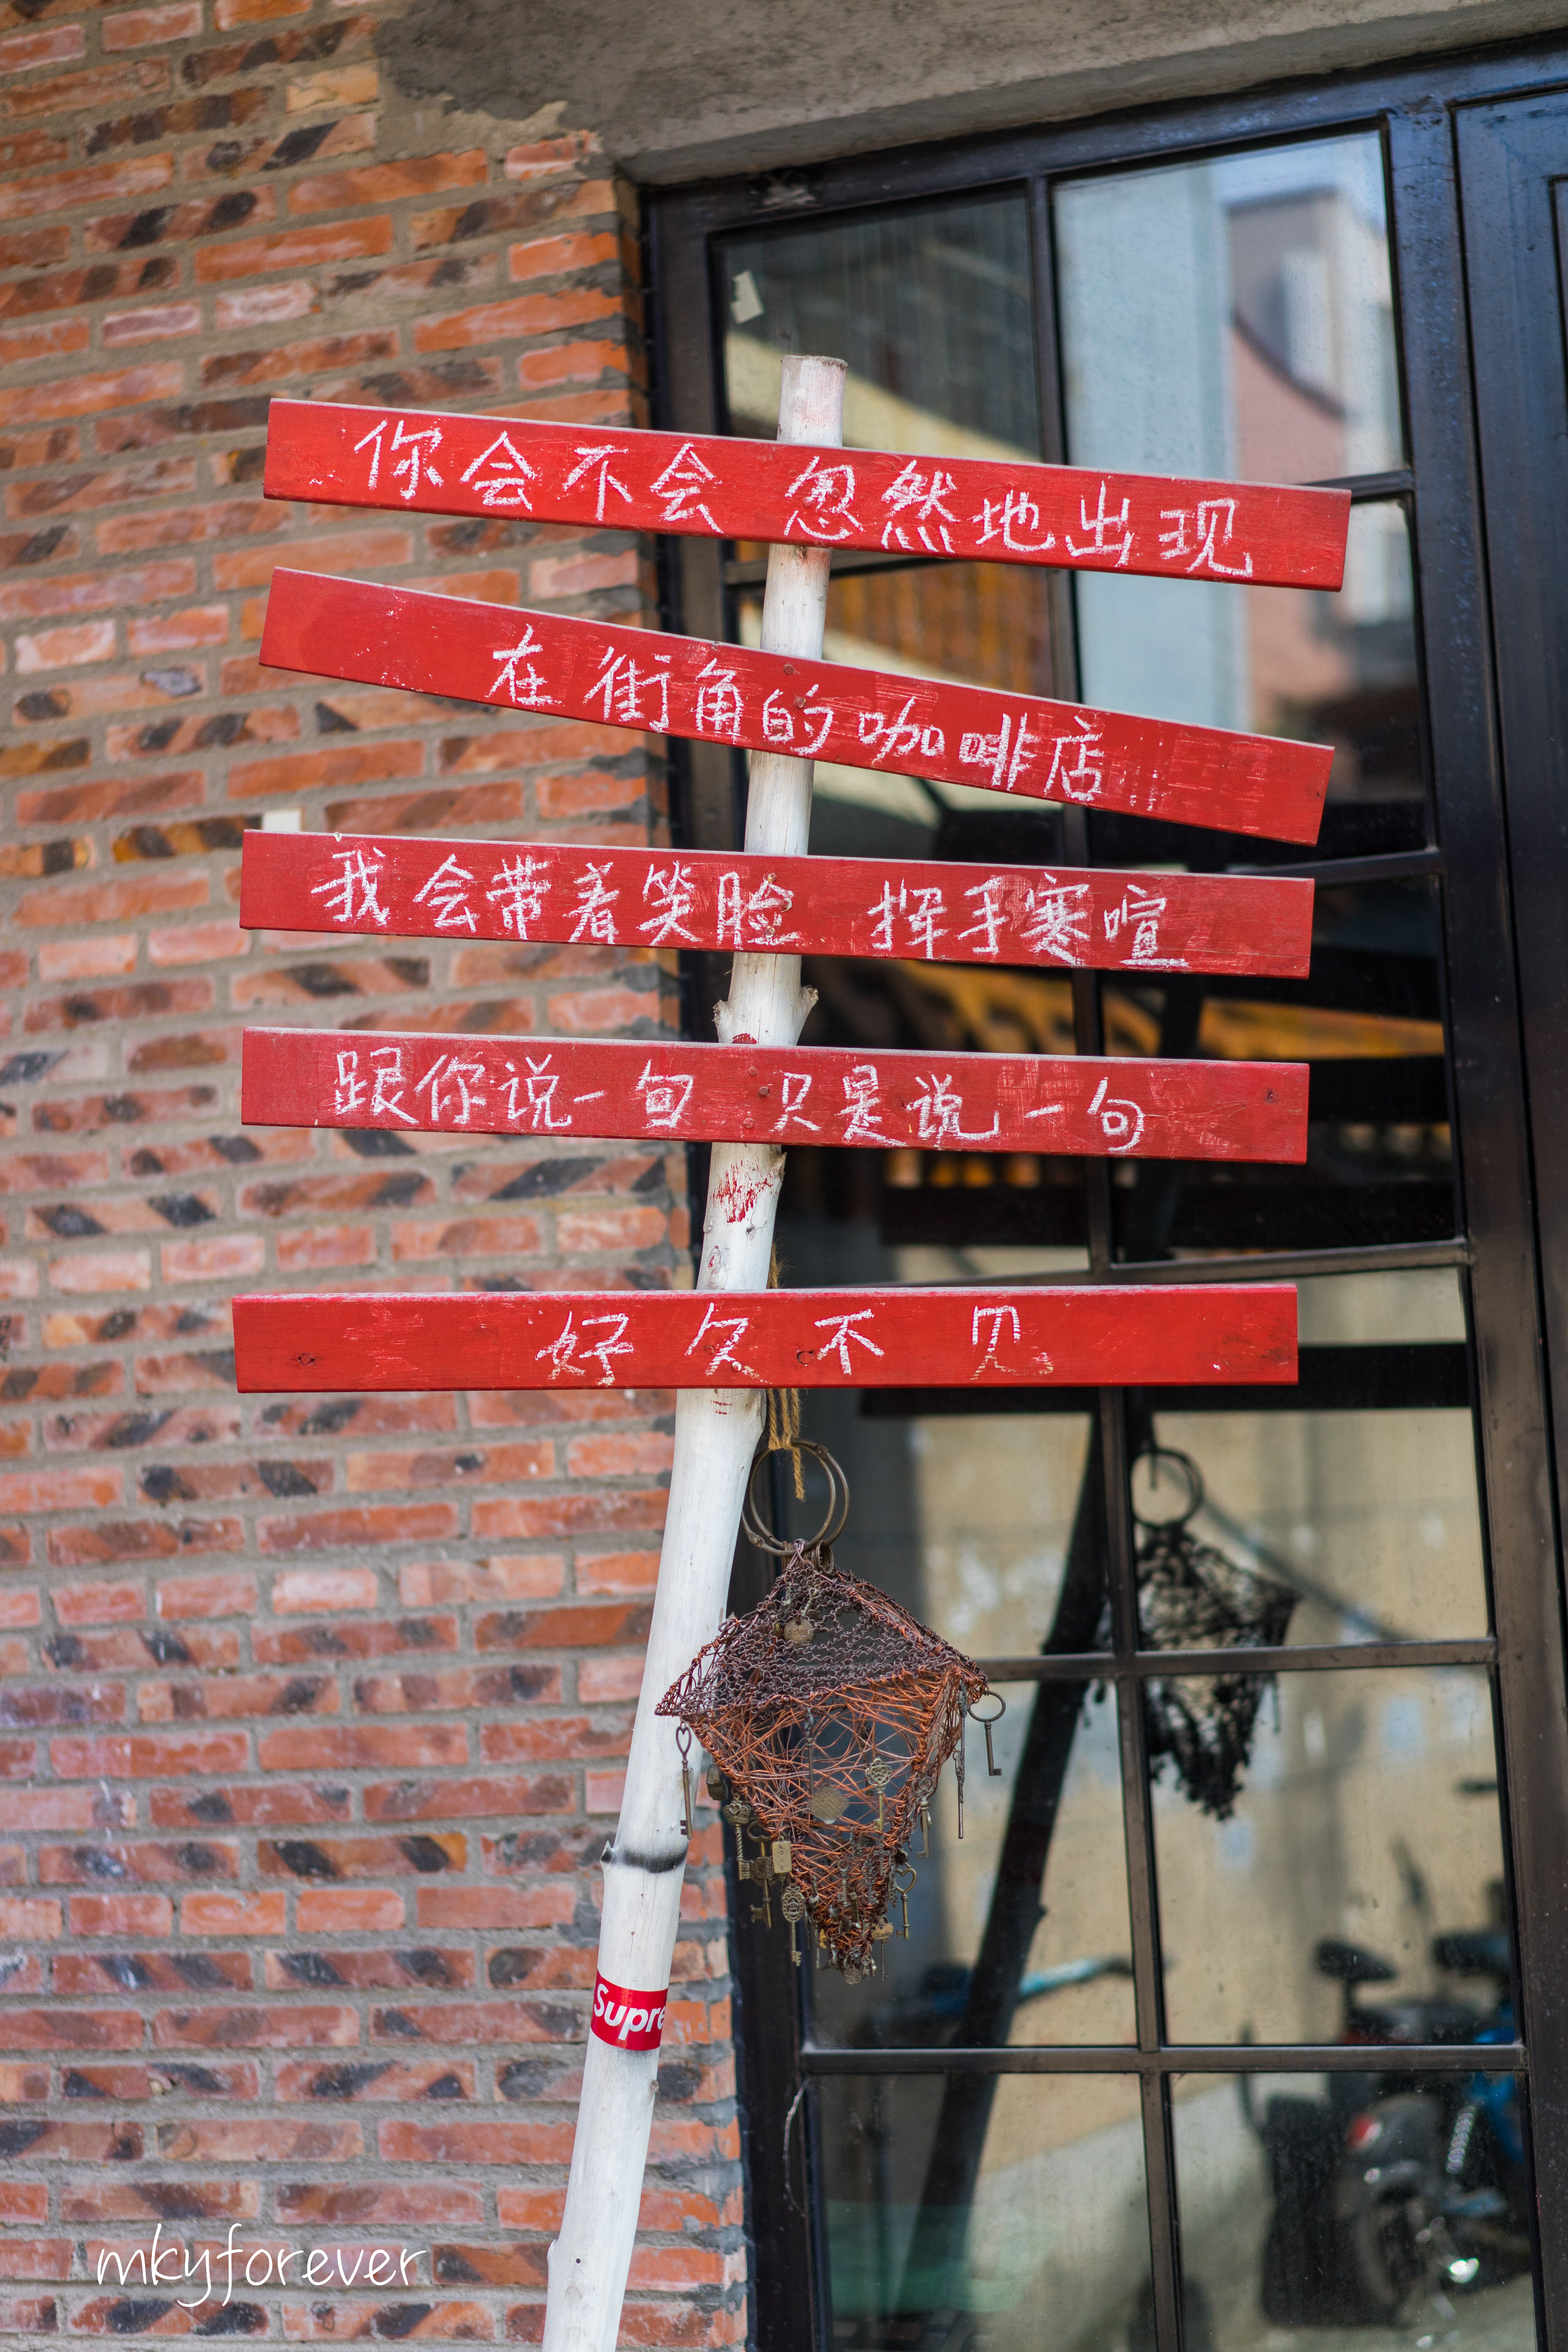 你会不会 忽然地出现
在街角的咖啡店
我会带着笑脸 挥手寒喧
跟你说一句 只是说一句
好久不见
Supre
mkyforever